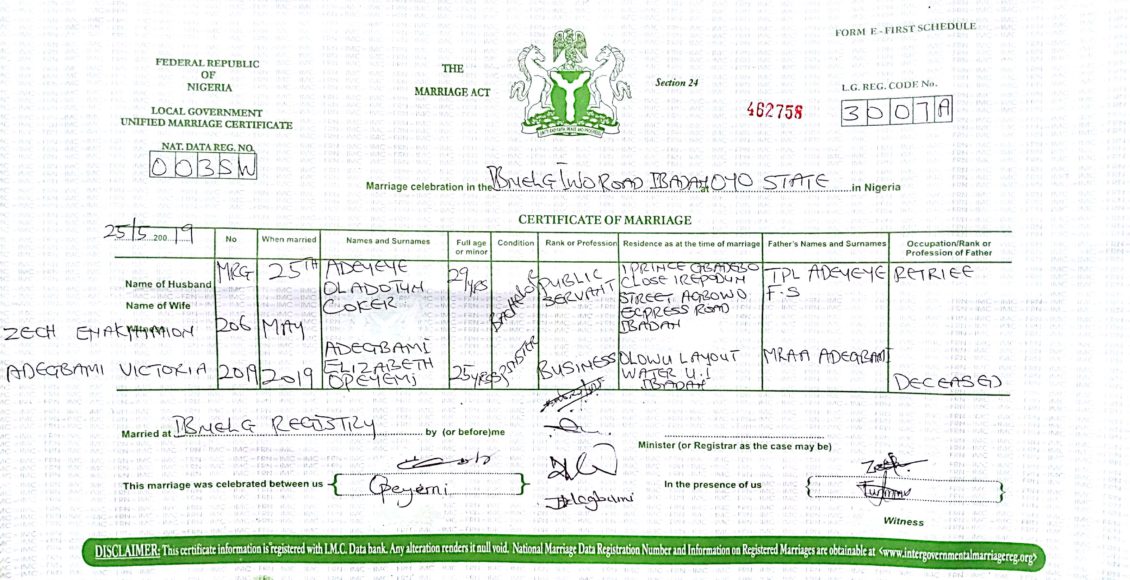 FORM E - FIRST SCHEDULE
FEDERAL REPUBLIC
OF
NIGERIA
LOCAL GOVERNMENT
UNIFIED MARRIAGE CERTIFICATE
NAT. DATA REG. NO.
003SW
THE
MARRIAGE ACT
Section 24
462758
L.G. REG. CODE No.
3007A
Marriage celebration in the IBNELG IWO ROAD IBADAN at OYO STATE in Nigeria
CERTIFICATE OF MARRIAGE
25/5 200 19
No
When married
Names and Surnames
Full age or minor
Condition
Rank or Profession
Residence as at the time of marriage
Father's Names and Surnames
Occupation/Rank or Profession of Father
Name of Husband
MRG
25TH
ADEYEYE
OLADOTUN
COKER
29 YRS
BACHELOR
PUBLIC
SERVANT
1 PRINCE GBADEBO
CLOSE IREPODUN
STREET AGBOWO
ECPRESS ROAD
IBADAN
TPL ADEYEYE
F.S
RETRIEE
Name of Wife
206
MAY
2019
2019
ADEGBAMI
ELIZABETH
OPEYEMI
25 YRS
SPINSTER
BUSINESS
OLOWU LAYOUT
WATER U.I
IBADAN
MRAA ADEGBAMI
DECEASED
ZECH
ADEGBAMI VICTORIA
Married at IBNELG REGISTRY by (or before)me
Minister (or Registrar as the case may be)
This marriage was celebrated between us
Opeyemi
In the presence of us
Witness
DISCLAIMER: This certificate information is registered with I.M.C. Data bank. Any alteration renders it null void. National Marriage Data Registration Number and Information on Registered Marriages are obtainable at <www.intergovernmentalmarriagereg.org>